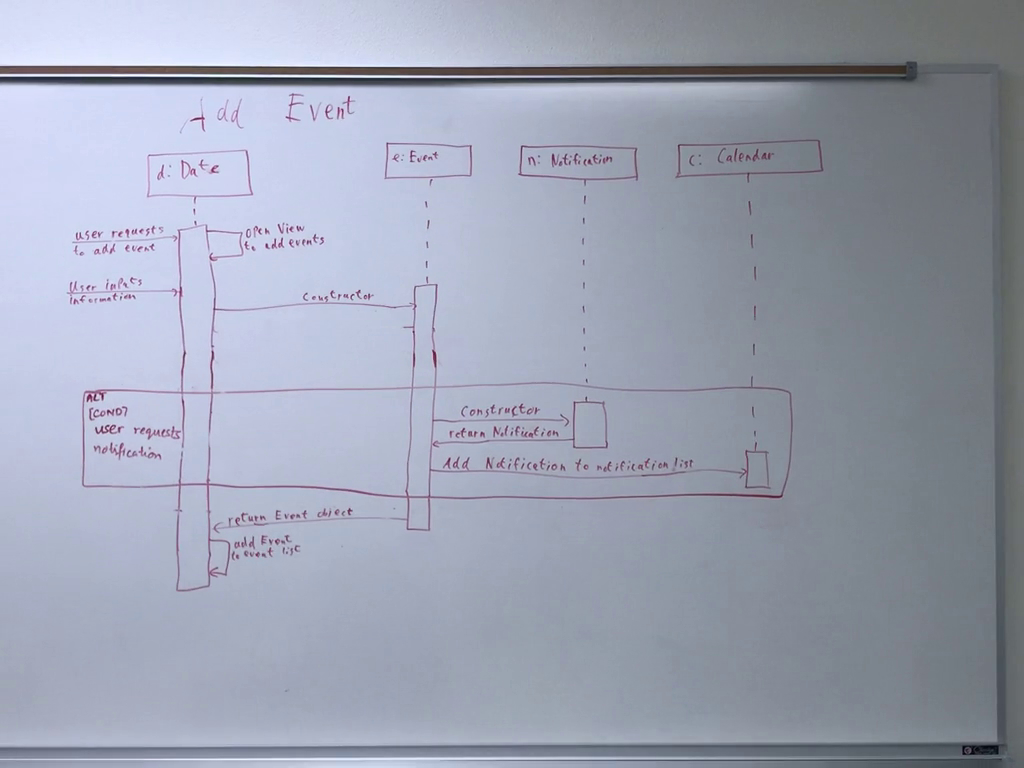 Add Event
d: Date
e: Event
n: Notification
c: Calendar
user requests
to add event
open View
to add events
User inputs
information
Constructor
ALT
[COND]
user requests
notification
Constructor
return Notification
Add Notification to notification list
return Event object
add Event
to event list